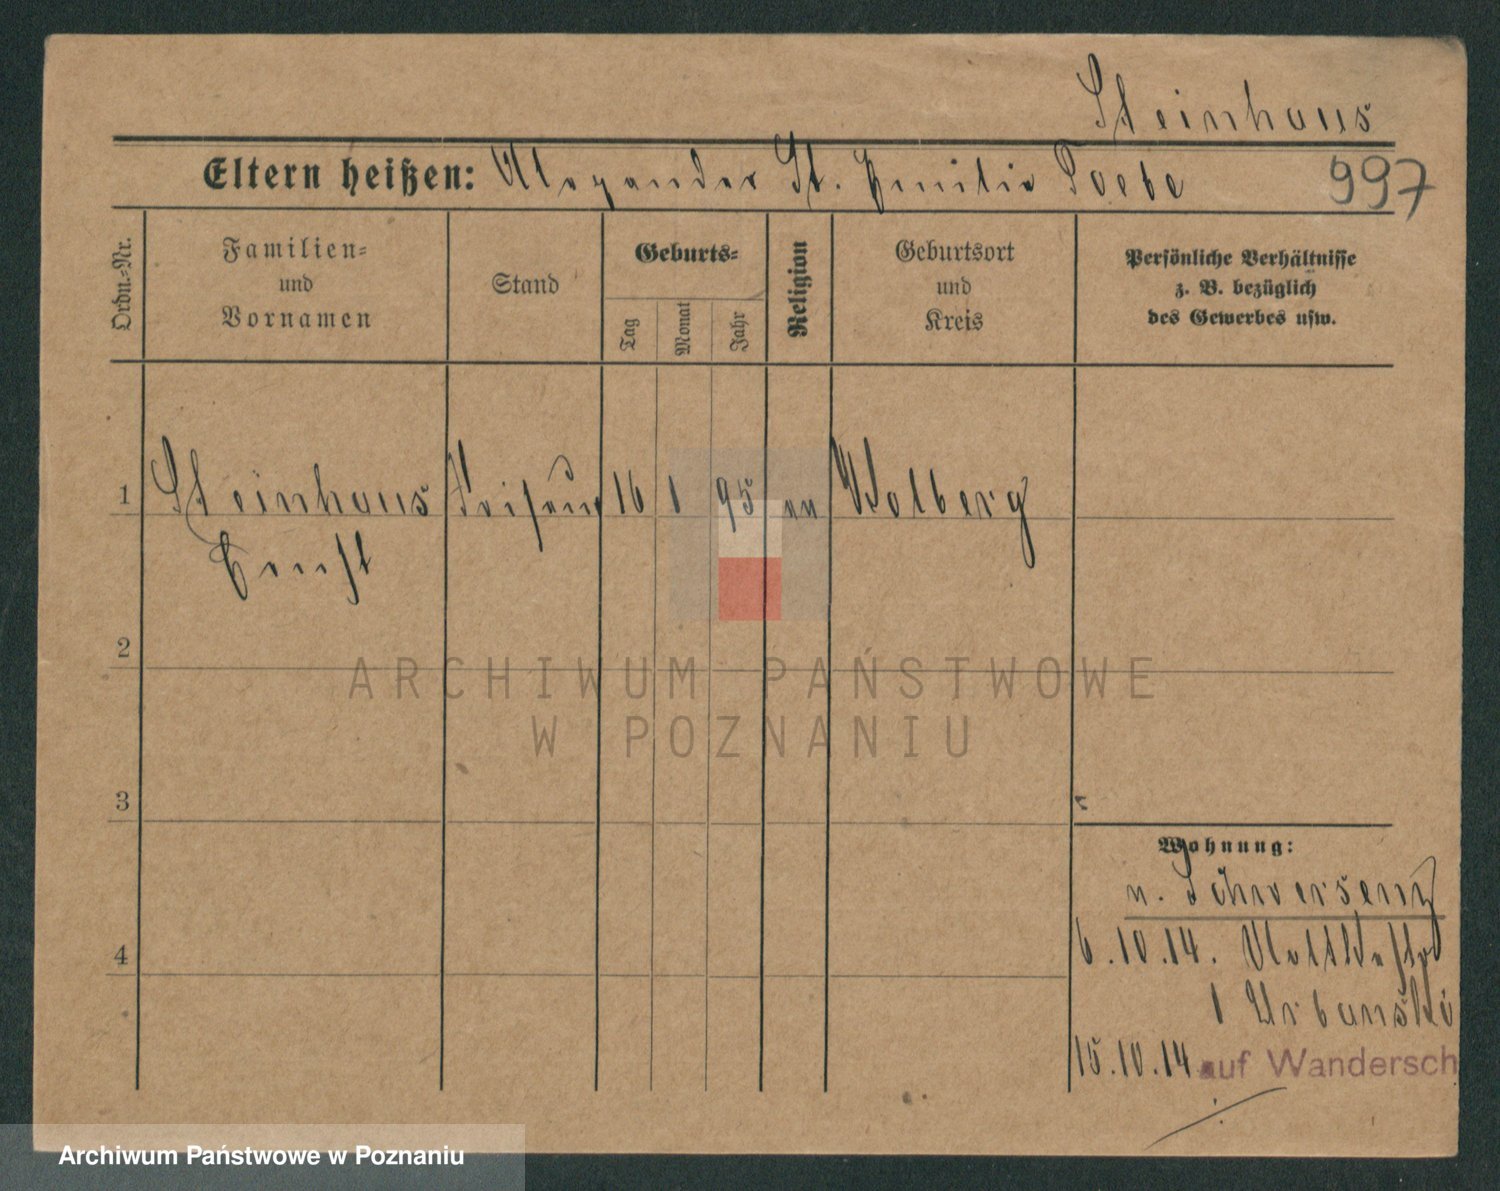 Steinhaus
Eltern heißen: Alexander St. Emilie Toebe 997
Ordn.-Nr.
Familien- und Vornamen
Stand
Geburts-
Tag
Monat
Jahr
Religion
Geburtsort und Kreis
Persönliche Verhältnisse z. B. bezüglich des Gewerbes usw.
1 Steinhaus 16 1 95 Kolberg
Ernst
2
ARCHIWUM PAŃSTWOWE
W POZNANIU
3
Wohnung:
n. Schwersenz
4
6.10.14.
1 Urbanski
15.10.14 auf Wandersch
Archiwum Państwowe w Poznaniu